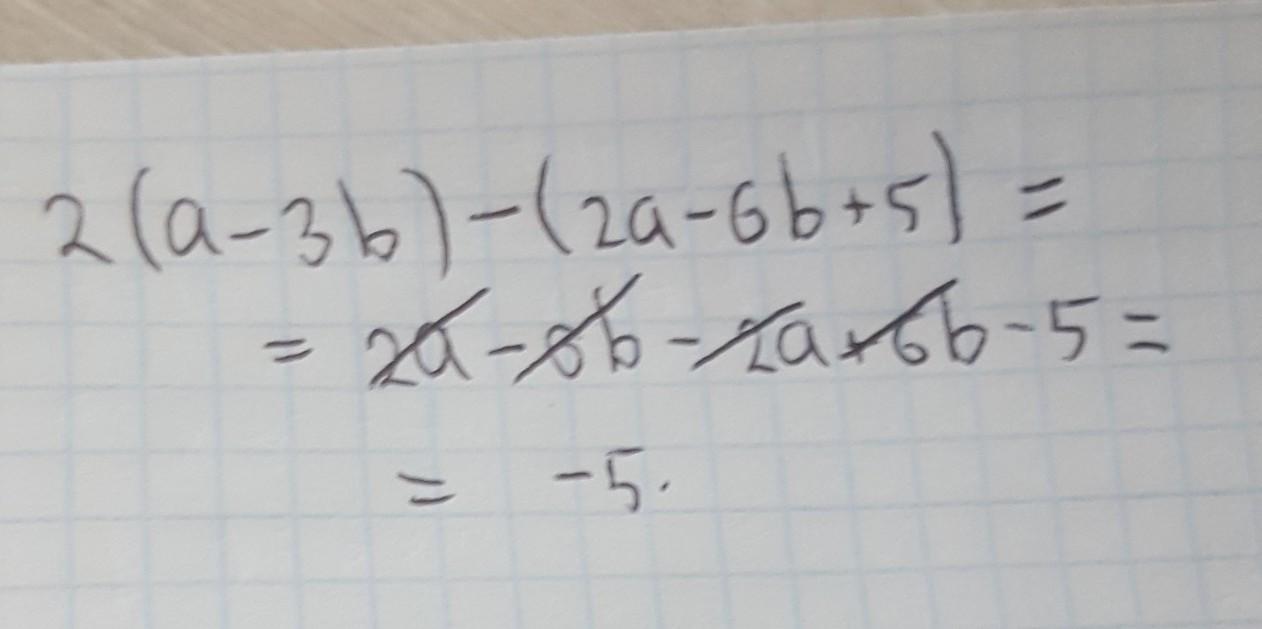 2(a-3b)-(2a-6b+5)=
= 2a-6b-2a+6b-5=
= -5.